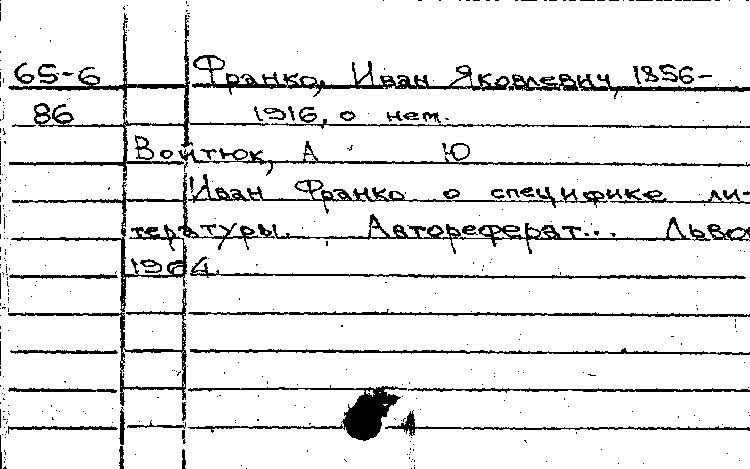 65-6 Франко, Иван Яковлевич, 1856-
86 1916, о нем.
Войтюк, А Ю
Иван Франко о специфике ли-
тературы. Автореферат... Льво
1964.